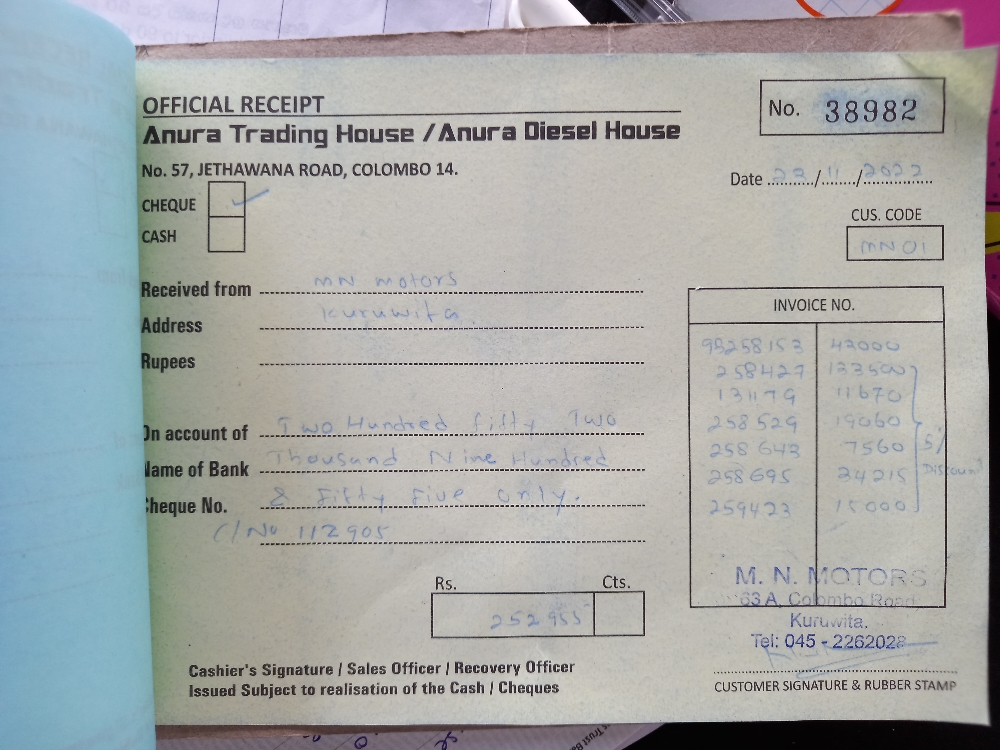 OFFICIAL RECEIPT
No. 38982
Anura Trading House / Anura Diesel House
No. 57, JETHAWANA ROAD, COLOMBO 14.
Date 23/11/2022
CHEQUE ✓
CASH
CUS. CODE
MN 01
Received from MN motors
Address Kuruwita
Rupees
On account of Two Hundred fifty Two
Name of Bank Thousand Nine Hundred
Cheque No. & Fifty Five only.
C/No 112905
INVOICE NO.
95258153 42000
258427 133500
131179 11670
258529 19060
258643 7560
258695 34215
259423 15000
5%
Discount
Rs. Cts.
252955
M. N. MOTORS
63 A, Colombo Road
Kuruwita.
Tel: 045 - 2262028
Cashier's Signature / Sales Officer / Recovery Officer
Issued Subject to realisation of the Cash / Cheques
CUSTOMER SIGNATURE & RUBBER STAMP